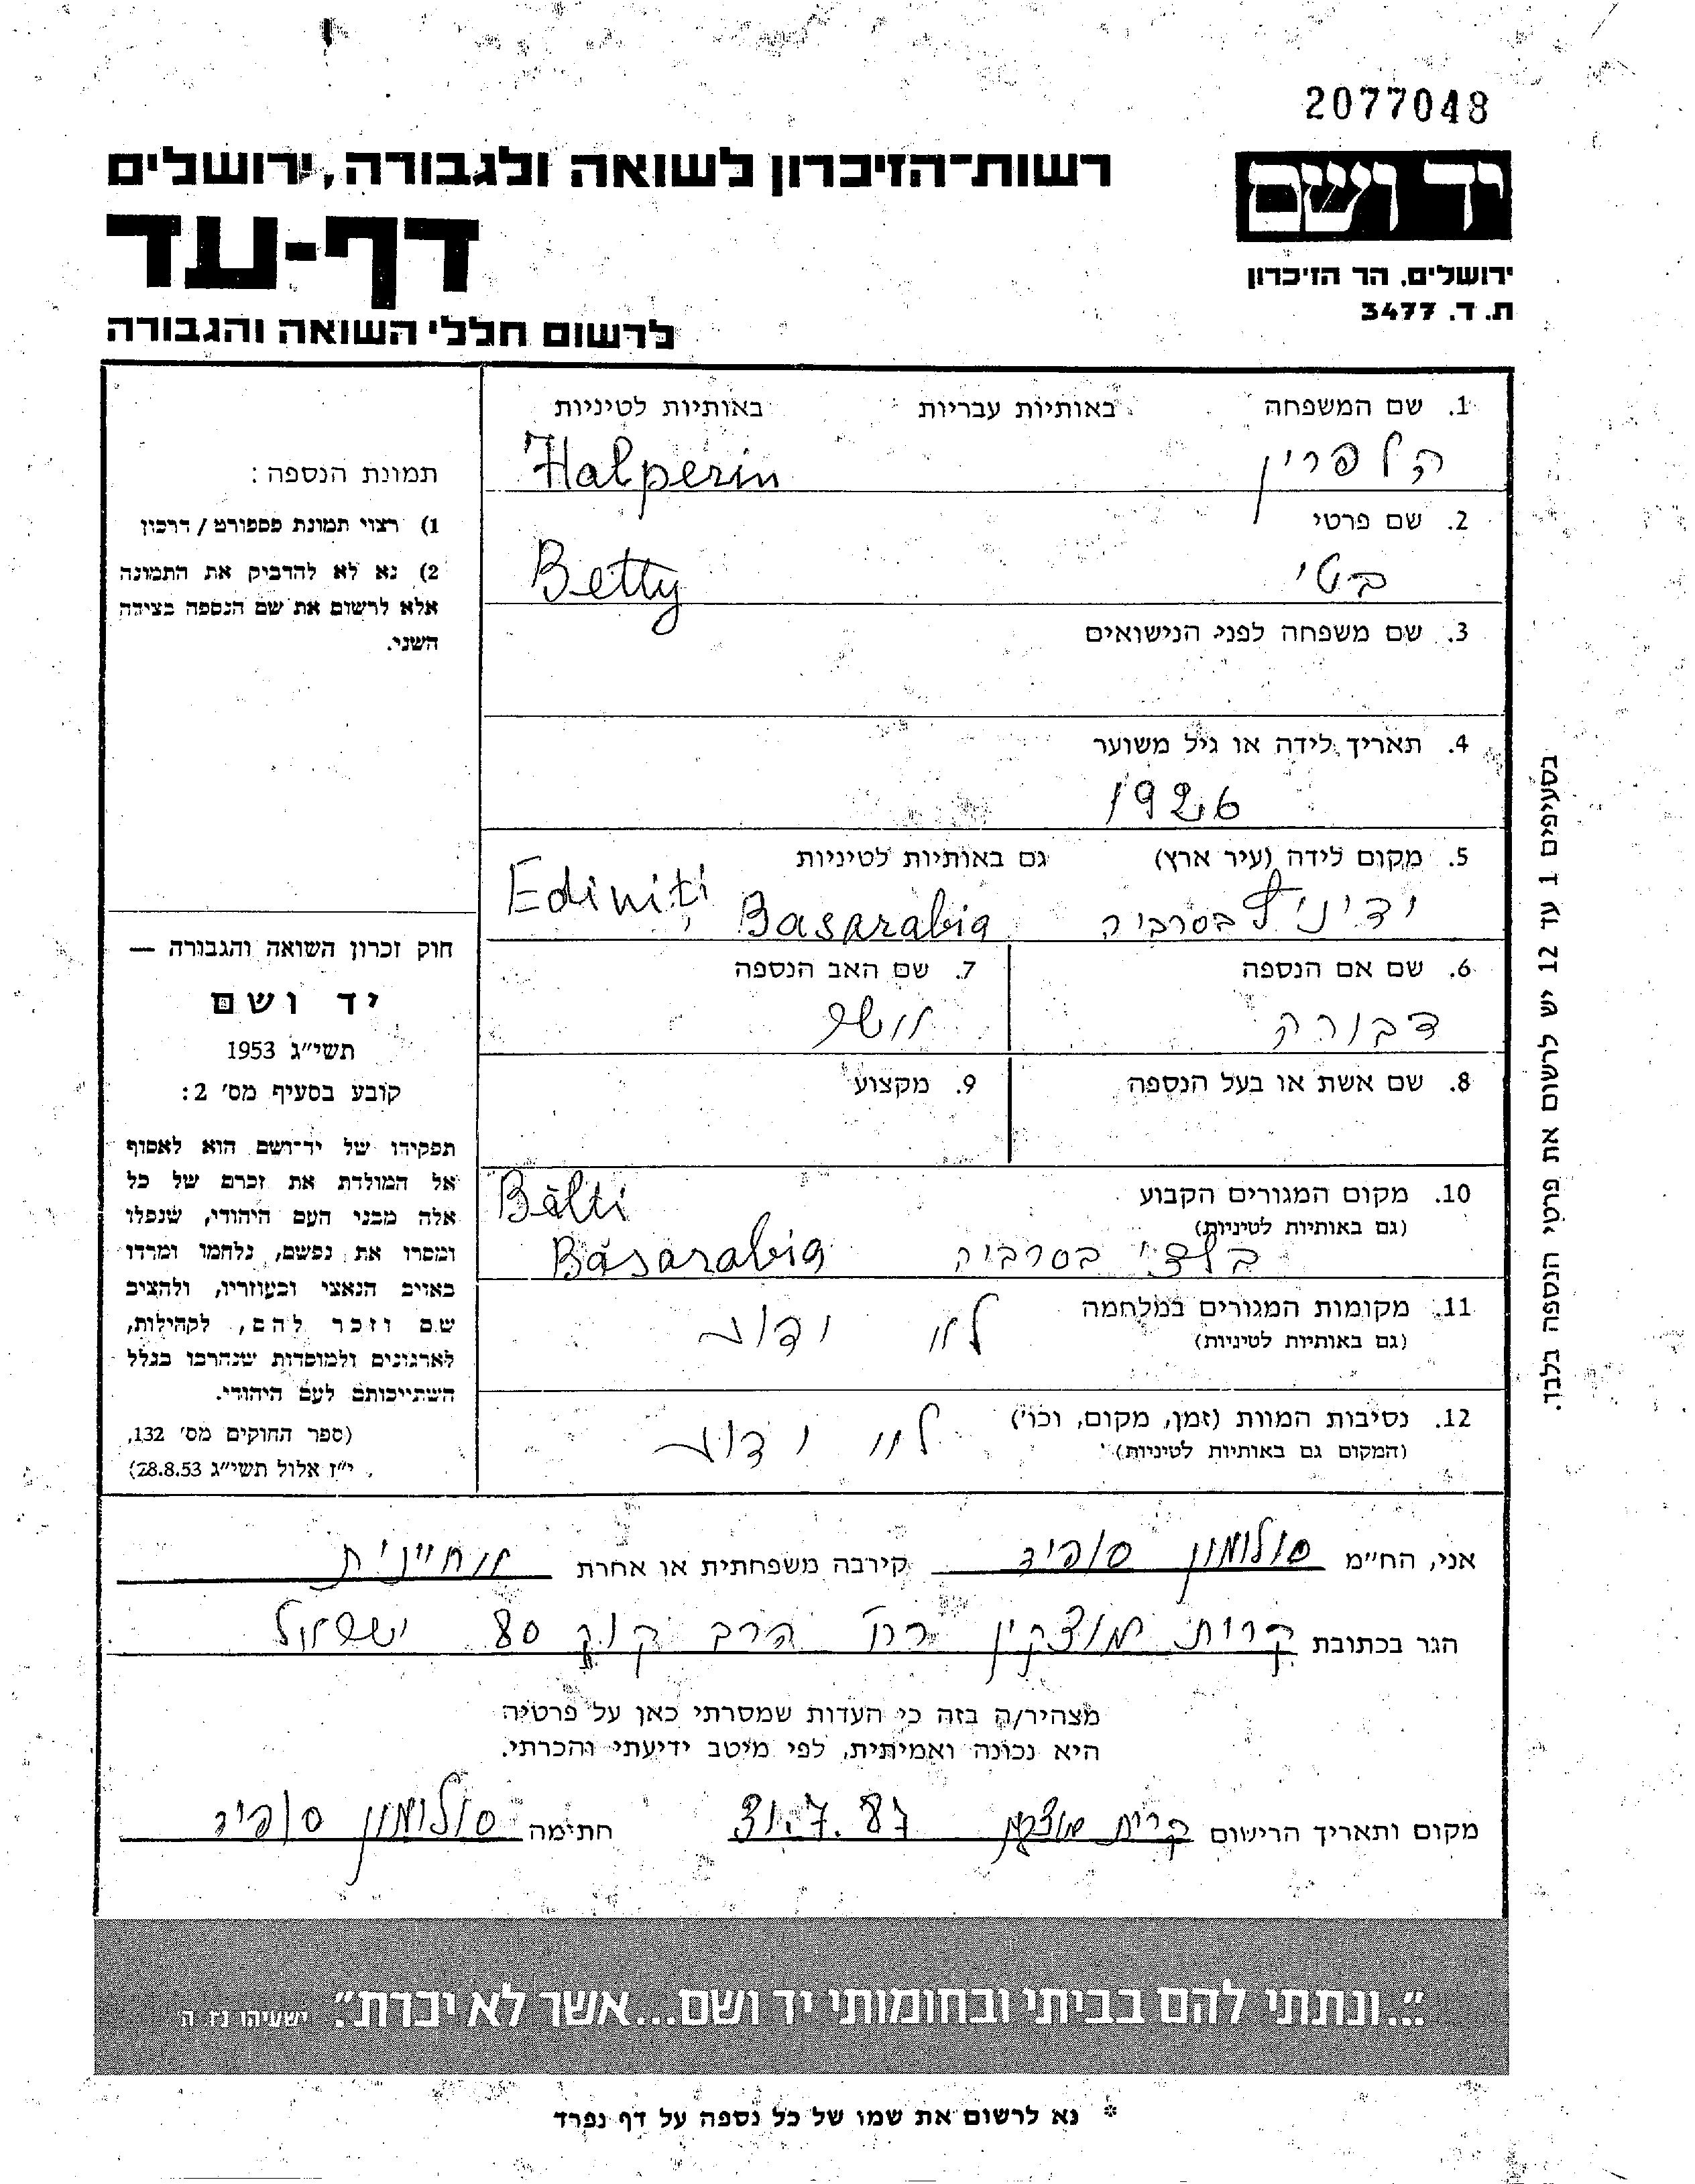 2077048
יד ושם
רשות־הזיכרון לשואה ולגבורה, ירושלים
דף-עד
ירושלים, הר הזיכרון
ת. ד. 3477
לרשום חללי השואה והגבורה
1. שם המשפחה באותיות עבריות באותיות לטיניות
הלפרין Halperin
2. שם פרטי
בטי Betty
3. שם משפחה לפני הנישואים
4. תאריך לידה או גיל משוער
1926
5. מקום לידה (עיר ארץ) גם באותיות לטיניות
בסרביה Ediniţi Basarabia
6. שם אם הנספה 7. שם האב הנספה
דבורה משה
8. שם אשת או בעל הנספה 9. מקצוע
10. מקום המגורים הקבוע
(גם באותיות לטיניות)
בלצי בסרביה Bălti Basarabia
11. מקומות המגורים במלחמה
(גם באותיות לטיניות)
לא ידוע
12. נסיבות המוות (זמן, מקום, וכו')
(המקום גם באותיות לטיניות)
לא ידוע
תמונת הנספה:
1) רצוי תמונת פספורט / דרכון
2) נא לא להדביק את התמונה
אלא לרשום את שם הנספה בצידה
השני.
חוק זכרון השואה והגבורה —
יד ושם
תשי״ג 1953
קובע בסעיף מס' 2:
תפקידו של יד־ושם הוא לאסוף
אל המולדת את זכרם של כל
אלה מבני העם היהודי, שנפלו
ומסרו את נפשם, נלחמו ומרדו
באויב הנאצי ובעוזריו, ולהציב
שם וזכר להם, לקהילות,
לארגונים ולמוסדות שנחרבו בגלל
השתייכותם לעם היהודי.
(ספר החוקים מס' 132,
י״ז אלול תשי״ג 28.8.53)
בסעיפים 1 עד 12 יש לרשום את פרטי הנספה בלבד.
אני, הח״מ סולומון סופיר קירבה משפחתית או אחרת אחיינית
הגר בכתובת קרית מוצקין רח' הרב קוק 80 ישראל
מצהיר/ה בזה כי העדות שמסרתי כאן על פרטיה
היא נכונה ואמיתית, לפי מיטב ידיעתי והכרתי.
מקום ותאריך הרישום קרית מוצקין 31.7.87 חתימה סולומון סופיר
״...ונתתי להם בביתי ובחומותי יד ושם...אשר לא יכרת״. ישעיהו נו ה
* נא לרשום את שמו של כל נספה על דף נפרד